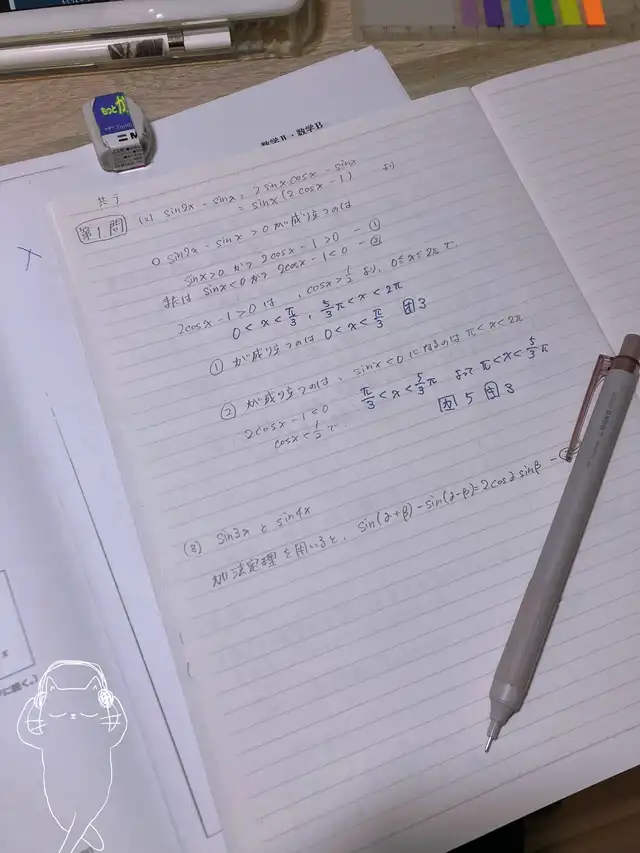 数学Ⅱ・数学B
もっとカ
共テ
第1問
(2) sin2x - sinx = 2 sinx cosx - sinx
= sinx (2cosx - 1) より
sin2x - sinx > 0 が成り立つのは
sinx>0 かつ 2cosx - 1 > 0 - ①
または sinx<0 かつ 2cosx - 1 < 0 - ②
2cosx - 1 > 0 は, cosx > 1/2 より, 0≦x≦2π で,
0 < x < π/3, 5/3π < x < 2π
① が成り立つのは 0 < x < π/3 オ 3
② が成り立つのは, sinx < 0 になるのは π < x < 2π
2cosx - 1 < 0 π/3 < x < 5/3π よって π < x < 5/3π
cosx < 1/2 で, カ 5 キ 3
(3) sin3x と sin4x
加法定理を用いると, sin(α+β) - sin(α-β) = 2cosα sinβ -
x
に続く。)